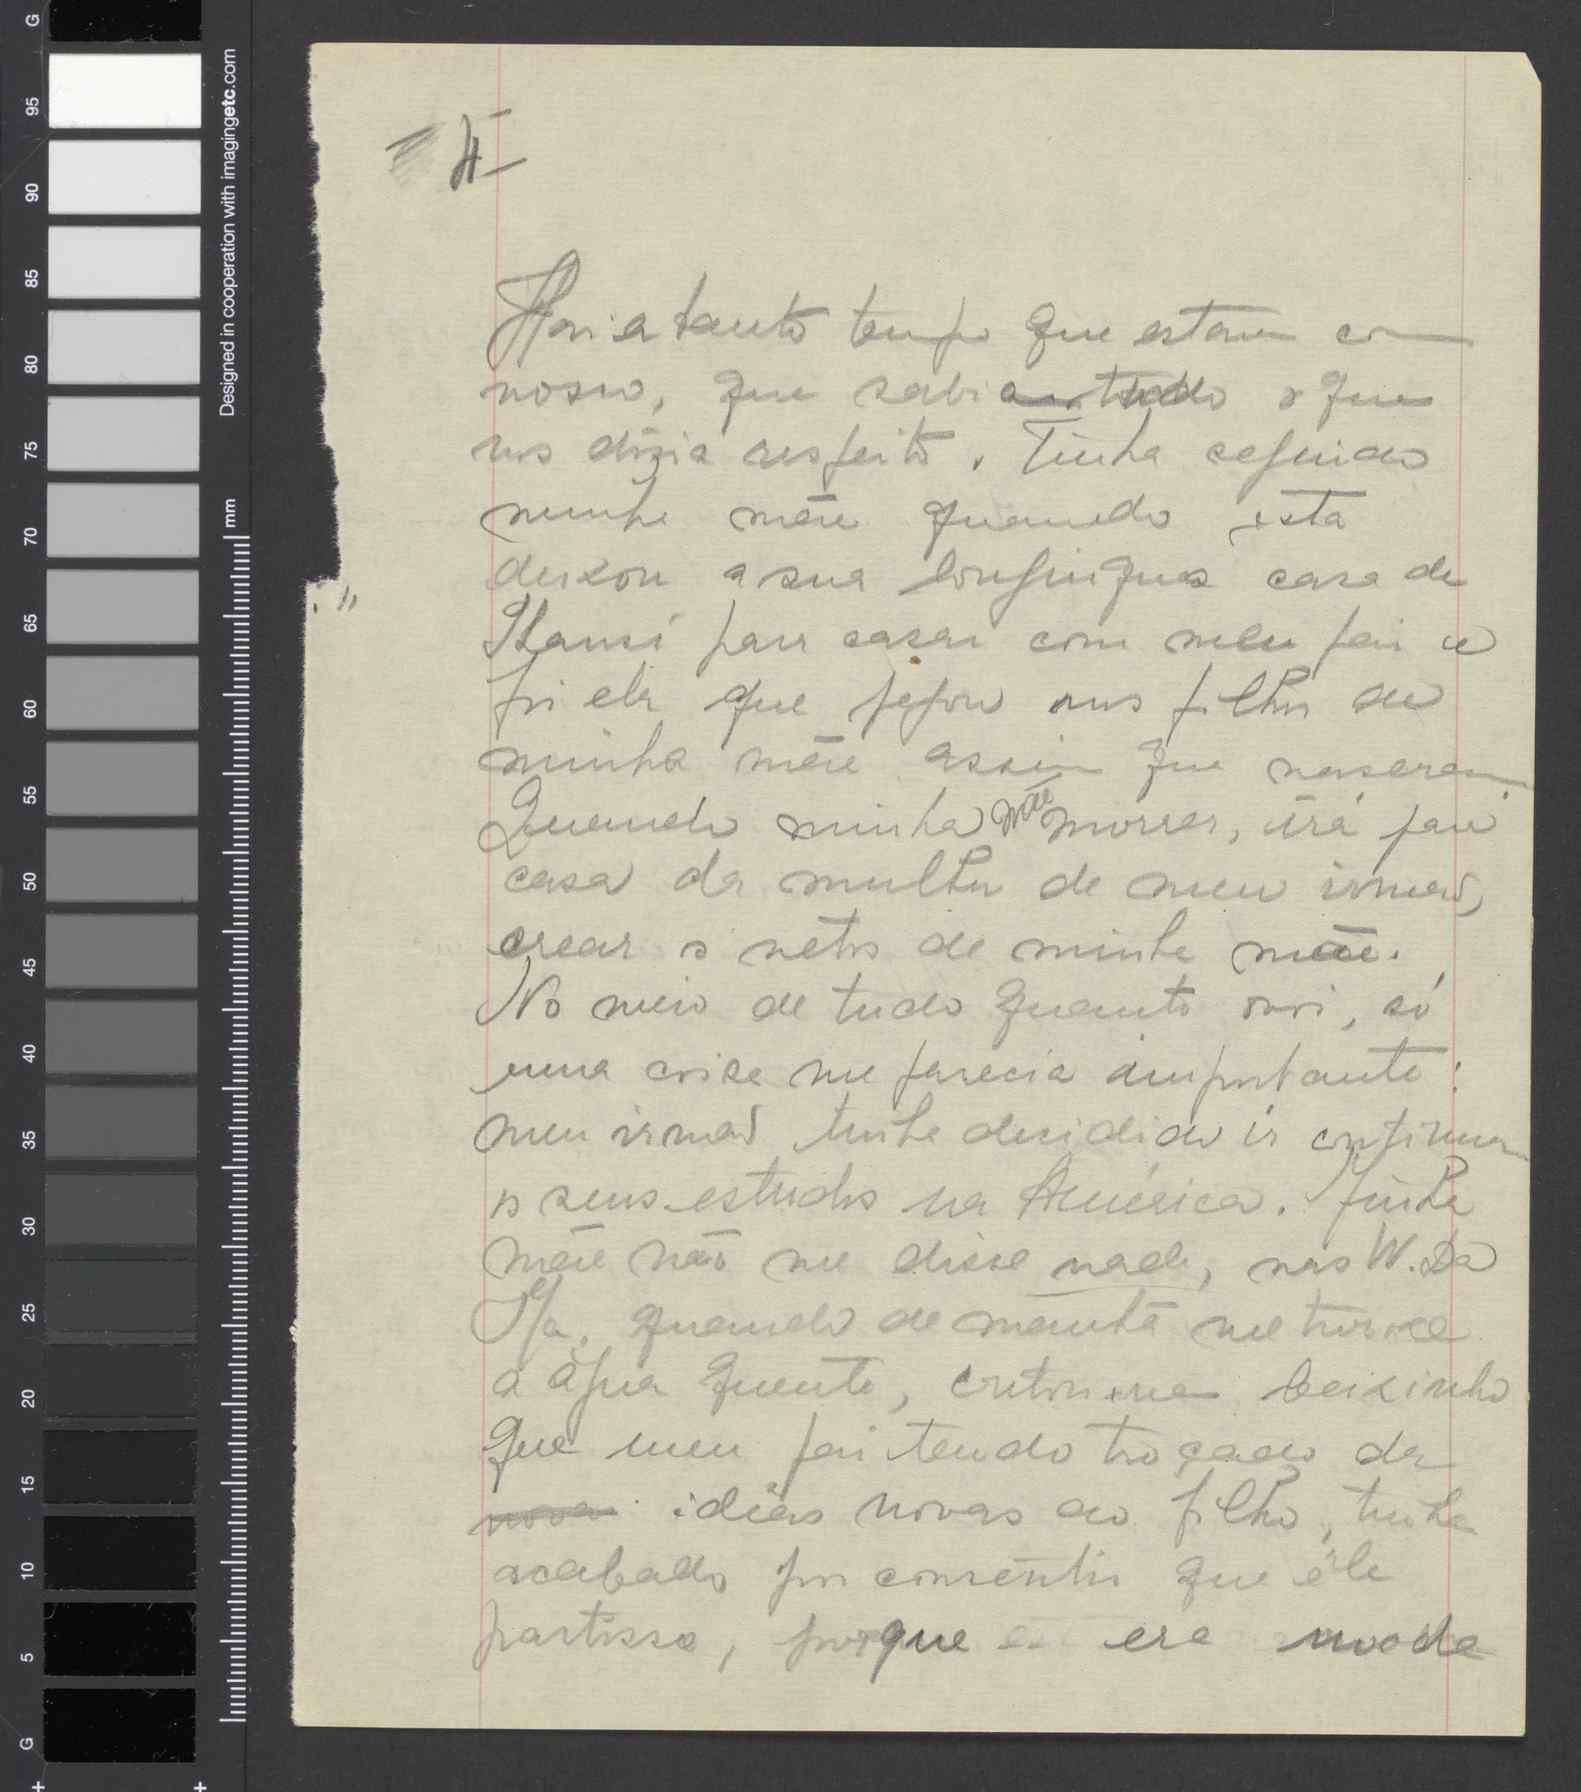 G
95
90
85
80
75
70
65
60
55
50
45
40
35
30
25
20
15
10
5
G
Designed in cooperation with imagingetc.com
mm
II
Havia tanto tempo que estava co
nosco, que sabia tudo o que
nos dizia respeito. Tinha seguido
minha mãe quando esta
deixou a sua longinqua casa de
para casar com meu pai e
foi ela que pegou nos filhos de
minha mãe assim que nasceram.
Quando minha mãe morrer, irá para
casa da mulher de meu irmão,
crear os netos de minha mãe.
No meio de tudo quanto ouvi, só
uma coisa me parecia importante:
meu irmão tinha decidido ir continuar
os seus estudos na América. Minha
mãe não me disse nada, mas W. Da
Ma, quando de manhã me trouxe
a água quente, contou-me baixinho
que meu pai tendo troçado da
nova idéas novas do filho, tinha
acabado por consentir que êle
partisse, porque era moda